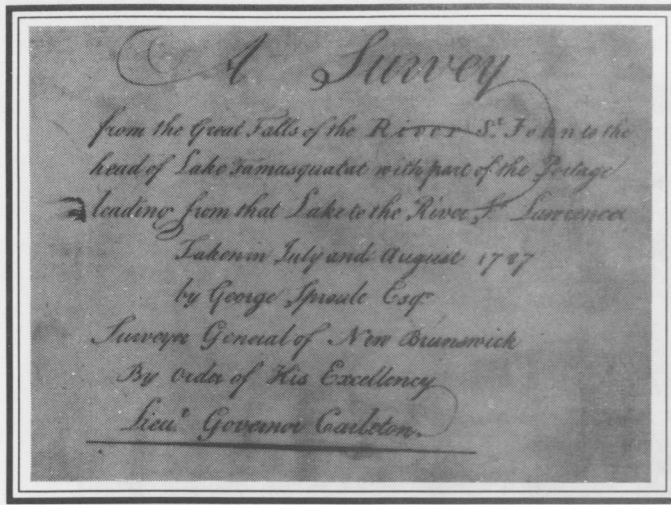 A Survey
from the Great Falls of the River St. John to the
head of Lake Tamasquatat with part of the Portage
leading from that Lake to the River St. Lawrence
Taken in July and August 1787
by George Sproule Esqr
Surveyor General of New Brunswick
By order of His Excellency
Lieut. Governor Carleton.